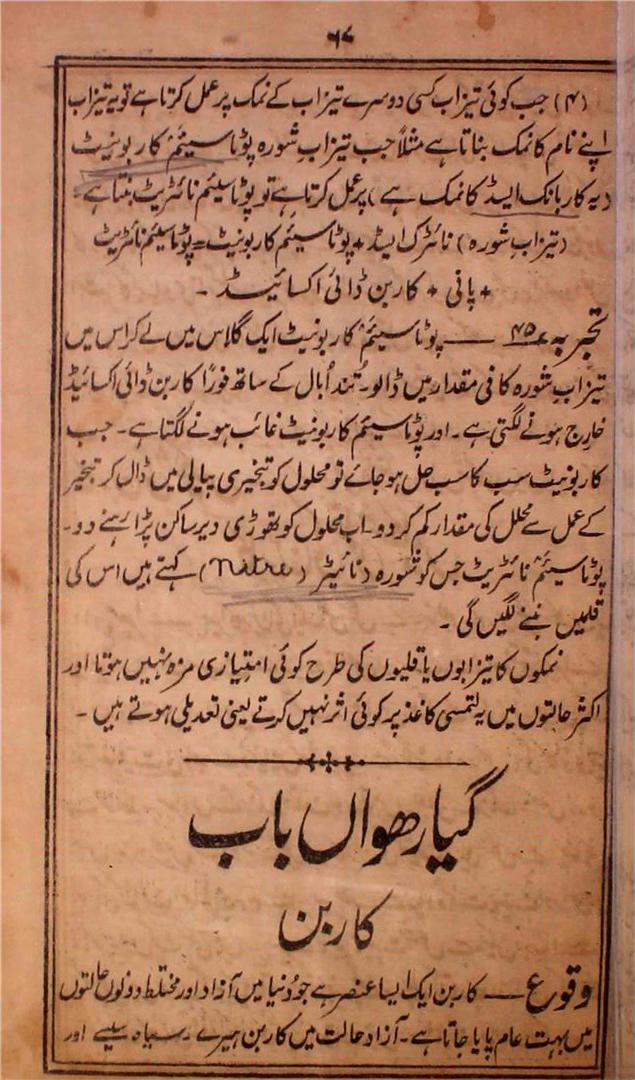 ۶۸
(۴) جب کوئی تیزاب کسی دوسرے تیزاب کے نمک پر عمل کرتا ہے تو یہ تیزاب
اپنے نام کا نمک بناتا ہے مثلاً جب تیزاب شورہ پوٹاسیئم کاربونیٹ
(یہ کاربانک ایسڈ کا نمک ہے) پر عمل کرتا ہے تو پوٹاسیئم نائٹریٹ بنتا ہے۔
(تیزاب شورہ) نائٹرک ایسڈ + پوٹاسیئم کاربونیٹ = پوٹاسیئم نائٹریٹ
+ پانی + کاربن ڈائی اکسائیڈ ۔
تجربہ ۴۵ — پوٹاسیئم کاربونیٹ ایک گلاس میں لے کر اس میں
تیزاب شورہ کافی مقدار میں ڈالو۔ تُند اُبال کے ساتھ فوراً کاربن ڈائی اکسائیڈ
خارج ہونے لگتی ہے۔ اور پوٹاسیئم کاربونیٹ غائب ہونے لگتا ہے۔ جب
کاربونیٹ سب کا سب حل ہو جائے تو محلول کو تبخیری پیالی میں ڈال کر تبخیر
کے عمل سے محلل کی مقدار کم کر دو۔ اب محلول کو تھوڑی دیر ساکن پڑا رہنے دو۔
پوٹاسیئم نائٹریٹ جس کو شورہ (نائیٹر Nitre) کہتے ہیں اس کی
قلمیں بننے لگیں گی ۔
نمکوں کا تیزابوں یا قلیوں کی طرح کوئی امتیازی مزہ نہیں ہوتا اور
اکثر حالتوں میں یہ لتمسی کاغذ پر کوئی اثر نہیں کرتے یعنی تعدیلی ہوتے ہیں ۔
گیارھواں باب
کاربن
وقوع — کاربن ایک ایسا عنصر ہے جو دُنیا میں آزاد اور مختلط دونوں حالتوں
میں بہت عام پایا جاتا ہے۔ آزاد حالت میں کاربن ہیرے ۔ سیاہ سیسے اور